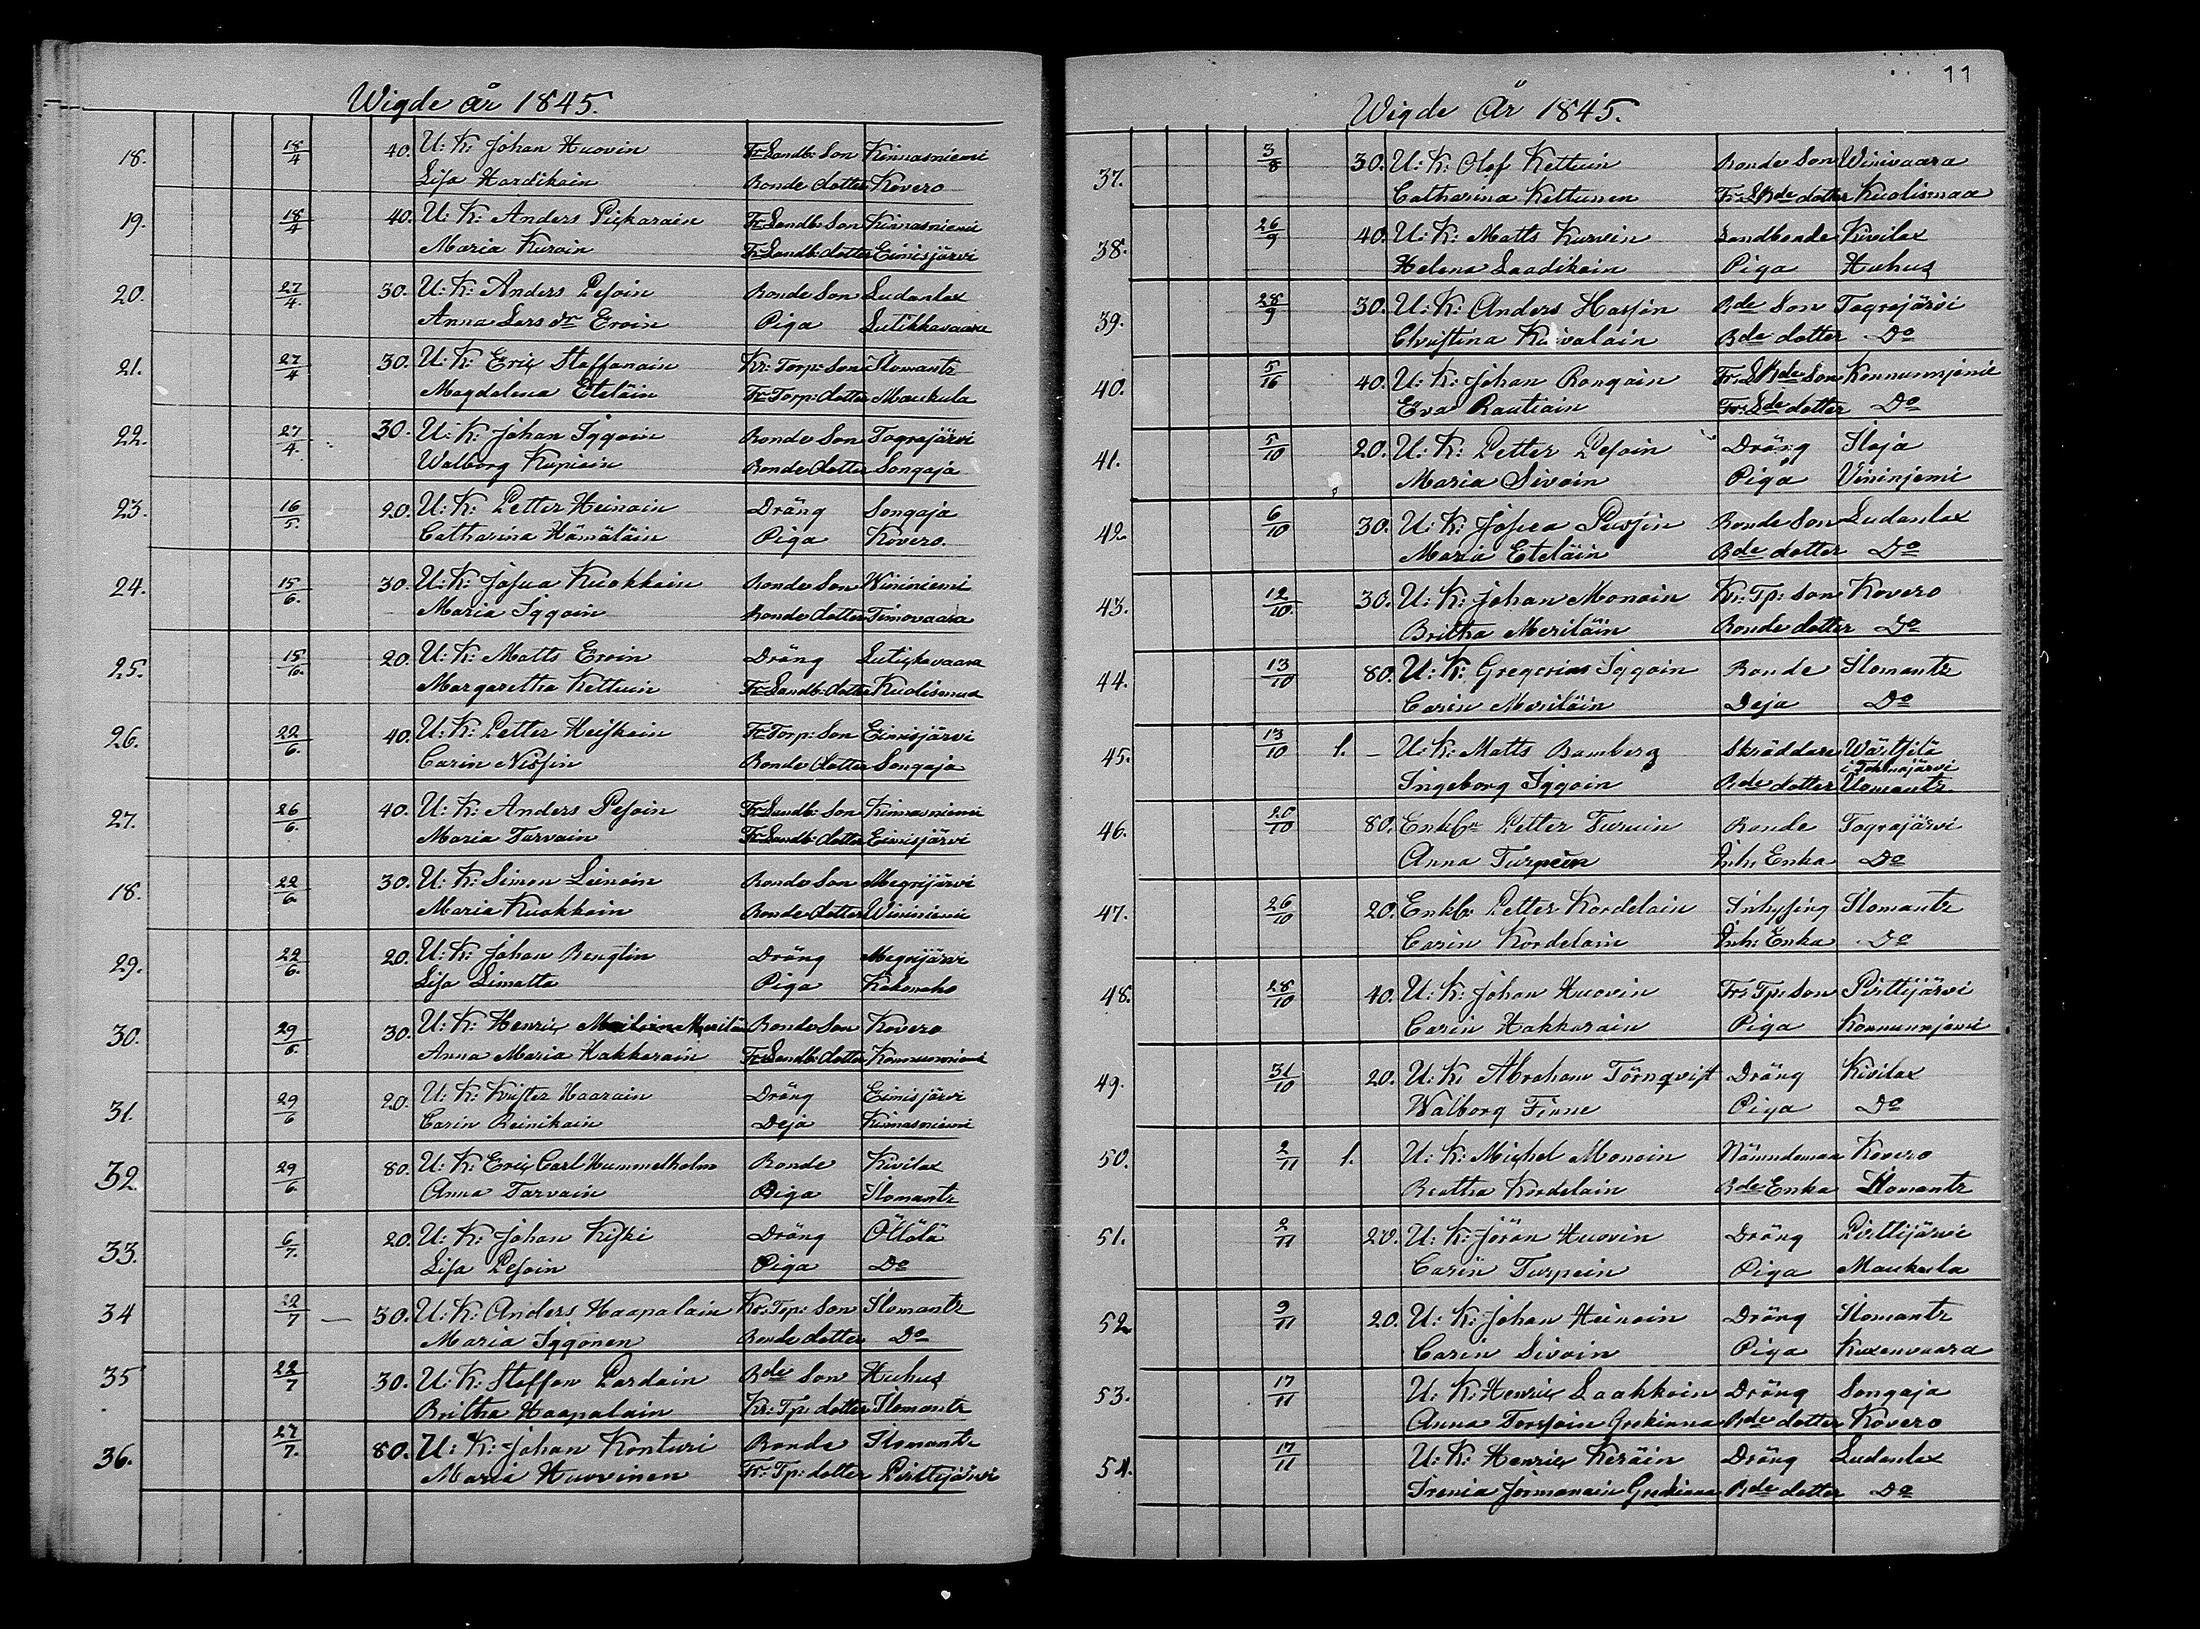 Wigde år 1845.
18. 18/4 40. U: K: Johan Huovin Fr Landb: Son Kinnasniemi
Lisa Hardikain Bonde dotter Kovero
19. 18/4 40. U: K: Anders Pickarain Fr Landb: Son Kinnasniemi
Maria Kurvin Fr Landb: dotter Eimisjärvi
20. 27/4. 30. U: K: Anders Pesoin Bonde Son Ludanlax
Anna Lars dr Eroin Piga Lutikkavaara
21. 27/4 30. U: K: Eric Staffanain Kr: Torp: Son Ilomantz
Magdalena Eteläin Fr Torp: dotter Maukula
22. 27/4. 30. U: K: Johan Iggoin Bonde Son Tograjärvi
Walborg Kupiain Bonde dotter Songaja
23. 16/5. 20. U: K: Petter Heinoin Dräng Songaja
Catharina Hämäläin Piga Kovero.
24. 15/6. 30. U: K: Josua Kuokkain Bonde Son Wininiemi
Maria Iggoin Bonde dotter Timovaara
25. 15/6. 20. U: K: Matts Eroin Dräng Lutickavaara
Margaretha Kettuin Fr Landb: dotter Kuolismaa
26. 22/6. 40. U: K: Petter Heiskain Fr Torp: Son Eimisjärvi
Carin Nissin Bonde dotter Songaja
27. 26/6. 40. U: K: Anders Pesoin Fr Landb: Son Kinnasniemi
Maria Tarvain Fr Landb: dotter Eimisjärvi
18. 22/6. 30. U: K: Simon Leinoin Bonde Son Megrijärvi
Maria Kuokkain Bonde dotter Wininiemi
29. 22/6. 20. U: K: Johan Benglin Dräng Megrijärvi
Lisa Limatta Piga Kakonaho
30. 29/6. 30. U: K: Henric Meriläin Bonde Son Kovero
Anna Maria Hakkarain Fr Landb: dotter Konnunniemi
31. 29/6 20. U: K: Krister Haarain Dräng Eimisjärvi
Carin Reinikain Deja Kinnasniemi
32. 29/6. 80. U: K: Eric Carl Hummelholm Bonde Kivilax
Anna Tarvain Piga Ilomantz
33. 6/7. 20. U: K: Johan Kiski Dräng Öllölä
Lisa Pesoin Piga Do
34 22/7 — 30. U: K: Anders Haapalain Kr: Torp: Son Ilomantz
Maria Iggonen Bonde dotter Do
35 22/7 30. U: K: Staffan Pardain Bde Son Huhus
Britha Haapalain Kr: Tp: dotter Ilomantz
36. 27/7. 80. U: K: Johan Konturi Bonde Ilomantz
Maria Huovinen Fr: Tp: dotter Pirttijärvi
11
Wigde År 1845.
37. 3/8 30. U: K: Olof Kettuin Bonde Son Winivaara
Catharina Kettunen Fr: LBde dotter Kuolismaa
38. 26/9 40. U: K: Matts Kurvin Landbonde Kivilax
Helena Laadikain Piga Huhus
39. 28/9 30. U: K: Anders Hassin Bde Son Tograjärvi
Christina Kaivalain Bde dotter Do
40. 5/16 40. U: K: Johan Rongain Fr: LBde Son Konnunnjemi
Eva Rautiain Fr: Lde dotter Do
41. 5/10 20. U: K: Petter Pesoin Dräng Iloja
Maria Sivoin Piga Vininjemi
42. 6/10 30. U: K: Josua Pussin Bonde Son Ludanlax
Maria Eteläin Bde dotter Do
43. 12/10. 30. U: K: Johan Monoin Kr: Tp: Son Kovero
Britha Meriläin Bonde dotter Do
44. 13/10 80. U: K: Gregorius Iggoin Bonde Ilomantz
Carin Meriläin Deja Do
45. 13/10 1. — U: K: Matts Bamberg Skräddare Wärtsilä
i Tohmajärvi
Ingeborg Iggoin Bde dotter Ilomantz
46. 20/10 80. Enkl: Petter Turuin Bonde Tograjärvi
Anna Turpein Inh: Enka Do
47. 26/10 20. Enkl: Petter Kordelain Inhysing Ilomantz
Carin Kordelain Inh: Enka Do
48. 28/10 40. U: K: Johan Huovin Fr: Tp: Son Pirttijärvi
Carin Hakkarain Piga Konnunnjemi
49. 31/10 20. U: K: Abraham Törnqvist Dräng Kivilax
Walborg Finne Piga Do
50. 2/11 1. U: K: Michel Monoin Nämndeman Kovero
Beatha Kordelain Bde Enka Ilomantz
51. 2/11 20. U: K: Jöran Huovin Dräng Pirttijärvi
Carin Turpein Piga Maukula
52. 9/11 20. U: K: Johan Heinoin Dräng Ilomantz
Carin Sivoin Piga Kuxenvaara
53. 17/11 U: K: Henric Laakkoin Dräng Songaja
Anna Torssoin Grekinna Bde dotter Kovero
54. 17/11 U: K: Henric Keräin Dräng Ludanlax
Irenia Jormanain Grekinna Bde dotter Do